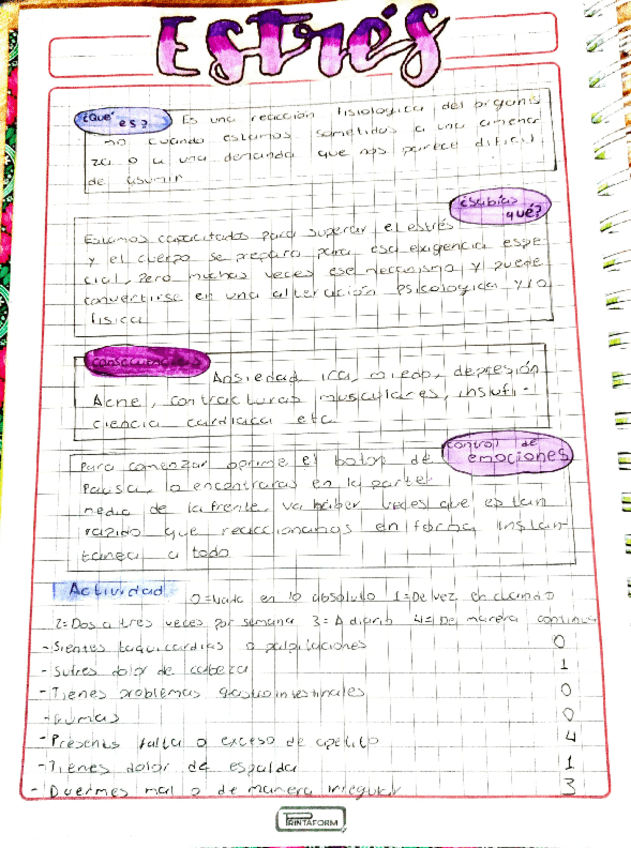 Estrés
¿Qué es?
Es una reacción fisiologica del organis
mo cuando estamos sometidos a una amena
za o a una demanda que nos parece dificil
de asumir
¿Sabías qué?
Estamos capacitados para superar el estrés
y el cuerpo se prepara para esa exigencia espe
cial, Pero muchas veces ese mecanismo y puede
convertirse en una alteración psicologica y/o
fisica
Consecuencias
Ansiedad, ira, miedo, depresión
Acne, contracturas musculares, insufi-
ciencia cardiaca etc
control de emociones
Para comenzar oprime el boton de
Pausa, lo encontraras en la parte
media de la frente, va haber veces que es tan
rapido que reaccionamos en forma instan-
tanea a todo
Actividad 0=Nada en lo absoluto 1=De vez en cuando
2=Dos a tres veces por semana 3=A diario 4=De manera continua
-Sientes taquicardias o palpitaciones 0
-Sufres dolor de cabeza 1
-Tienes problemas gastrointestinales 0
-Fumas 0
-Presentas falta o exceso de apetito 4
-Tienes dolor de espalda 1
-Duermes mal o de manera irregular 3
PRINTAFORM